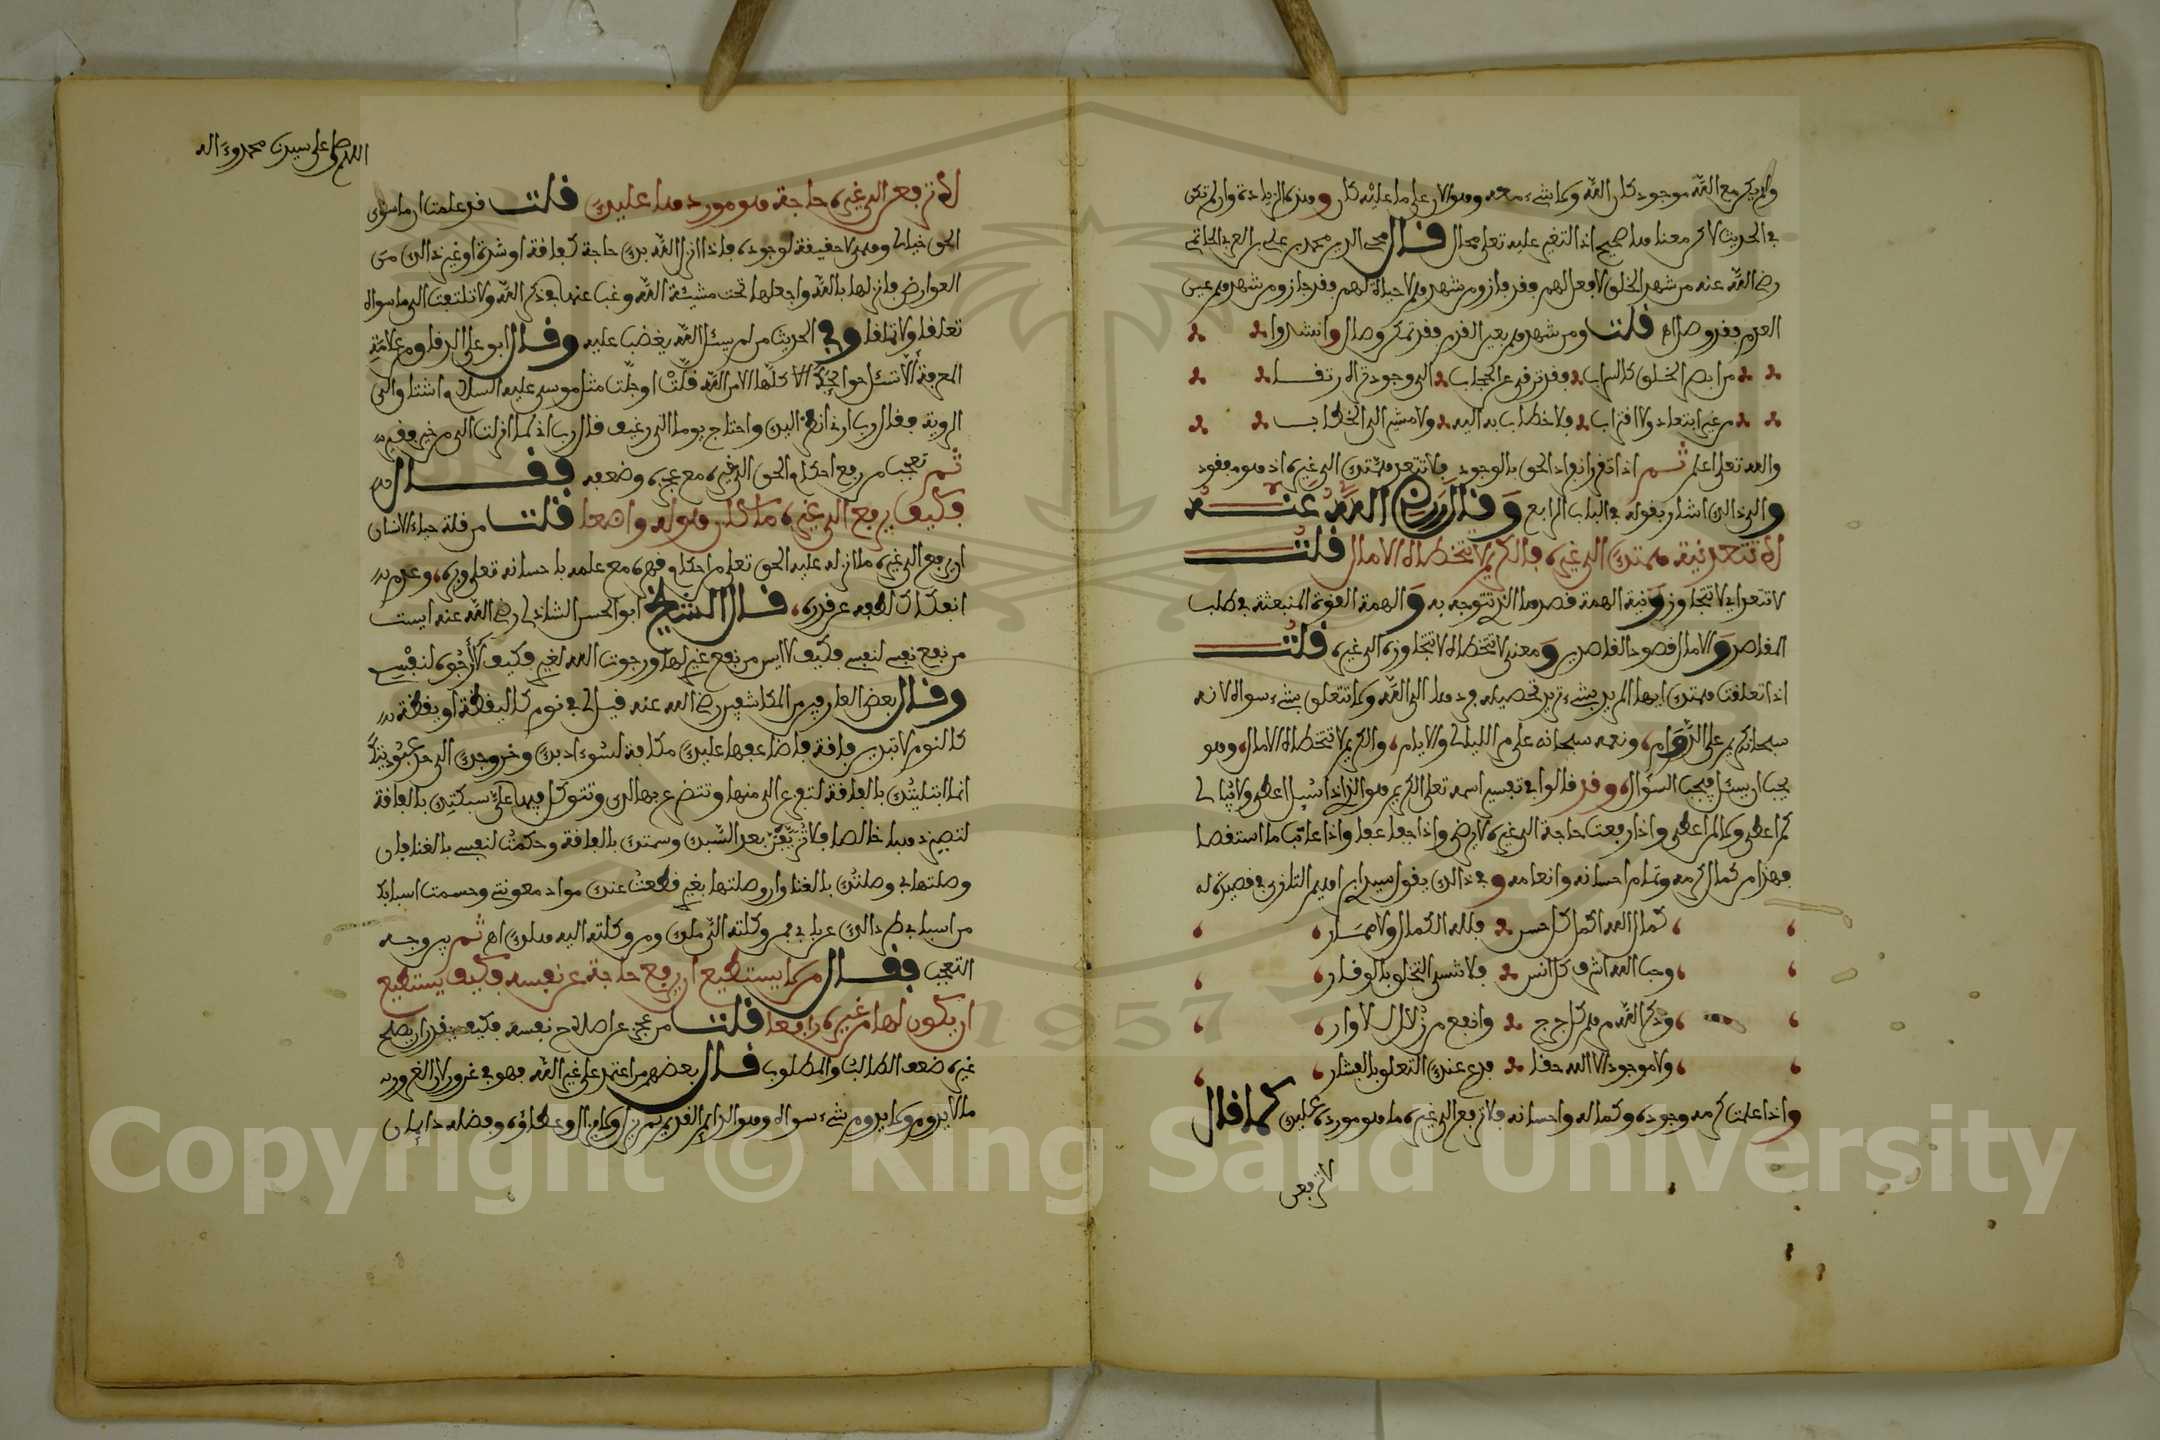 ولم يكن مع الله موجود كان الله ولا شيء معه وهو الان على ما عليه كان وهذه الزيادة وان لم تكن
في الحديث لكن معناها صحيح اذ التغير عليه تعلى محال قال محي الدين محمد بن علي بن العربي الحاتمي
رضي الله عنه من شهد الخلق لا فعل لهم فقد فاز ومن شهدهم لا حياة لهم فقد جاز ومن شهدهم عين
العدم فقد وصل اه قلت ومن شهدهم بعين العدم فقد تمكن وصاله وانشدوا
من ابصر الخلق كالسراب فقد ترقى عن الحجاب الى وجود تراه رتقا
من غير ابتعاد ولا اقتراب فلا خطاب به اليه ولا مشير الى الخطاب
والله تعلى اعلم ثم اذا تقرر انفراد الحق بالوجود فلا تتعد همتك الى غيره اذ هو مفقود
والى ذالك اشار بقوله في الباب الرابع وقال رضي الله عنه
لا تتعد نية همتك الى غيره فالكريم لا تتخطاه الامال قلت
لا تتعد اي لا تتجاوز ونية الهمة قصدها الذي تتوجه به والهمة القوة المنبعثة في طلب
المقاصد والامال قصود القاصدين ومعنى لا تتخطاه لا تتجاوزه الى غيره قلت
اذا تعلقت همتك ايها المريد بشيء تريد تحصيله فردها الى الله ولا تتعلق بشيء سواه لانه
سبحانه كريم على الدوام ونعمه سبحانه على مر الليالي والايام والكريم لا تتخطاه الامال وهو
يحب ان يسئل فيجيب السؤال وقد قالوا في تفسير اسمه تعلى الكريم هو الذي اذا سئل اعطى ولا يبالي
كم اعطى ولا لمن اعطى واذا رفعت حاجة الى غيره لا يرضى واذا جفا عفا واذا عاتب ما استقصا
فهذا من كمال كرمه وتمام احسانه وانعامه وفي ذالك يقول سيدي ابراهيم التازي في قصيدة له
كمال الله اكمل كل حسن فلله الكمال ولا ممار
وحب الله اشرف كل انس فلا تنس التخلق بالوقار
وذكر الله مرهم كل جرح وانفع من زلال للاوار
ولا موجود الا الله حقا فدع عنك التعلق بالفشار
واذا علمت كرمه وجوده وكماله واحسانه فلا ترفع الى غيره ما هو مورده عليك كما قال
لا ترفعن
اللهم صل على سيدنا محمد وءاله
لا ترفعن الى غيره حاجة هو موردها عليك قلت قد علمت ان ما سوى
الحق خيال وهمي لا حقيقة لوجوده فاذا انزل الله بك حاجة كفاقة او شدة او غير ذالك من
العوارض فانزلها بالله واجعلها تحت مشيئة الله وغب عنها في ذكر الله ولا تلتفت الى ما سواه
تعلقا ولا تملقا وفي الحديث من لم يسئل الله يغضب عليه وقال ابو علي الدقاق من علامة
المعرفة الا تسئل حوائجك كلها الا من الله قلت او جلت مثل موسى عليه السلام اشتاق الى
الروية فقال رب ارني انظر اليك واحتاج يوما الى رغيف فقال رب اني لما انزلت الي من خير فقير
ثم تعجب ممن رفع احكام الحق الى غيره مع عجزه وضعفه فقال
فكيف يرفع الى غيره ما كان هو له واضعا قلت من قلة حياء الانسان
ان يرفع الى غيره ما انزله عليه الحق تعلى من احكام قهره مع علمه باحسانه تعلى وبره وعدم
انفكاك لطفه عن قدره قال الشيخ ابو الحسن الشاذلي رضي الله عنه ايست
من نفع نفسي لنفسي فكيف لا ايس من نفع غيري لها ورجوت الله لغيري فكيف لا ارجوه لنفسي
وقال بعض العارفين من المكاشفين رضي الله عنه قيل لي في نوم كاليقظة او يقظة
كالنوم لا تبدين فاقة فاضاعفها عليك مكافاة لسوء ادبك وخروجك الى حد عبوديتك
انما ابتليتك بالفاقة لتفزع الي منها وتتضرع بها لدي وتتوكل فيها علي سبكتك بالفاقة
لتصير ذهبا خالصا فلا تزيفن بعد السبك وسمتك بالفاقة وحكمت لنفسي بالغنا فان
وصلتها بي وصلتك بالغنا وان وصلتها بغيري قطعت عنك مواد معونتي وحسمت اسبابك
من اسبابي طردا لك عن بابي فمن وكلته الي ملك ومن وكلته اليه هلك اه ثم بين وجه
التعجب فقال من لا يستطيع ان يرفع حاجة عن نفسه فكيف يستطيع
ان يكون لها من غيره رافعا قلت من عجز عن اصلاح نفسه فكيف يقدر ان يصلح
غيره ضعف الطالب والمطلوب قال بعضهم من اعتمد على غير الله فهو في غرور لان الغرور
ما لا يدوم ولا يدوم شيء سواه وهو الدايم القديم لم يزل ولا يزال وعطاؤه وفضله دايمان
Copyright © King Saud University
1957